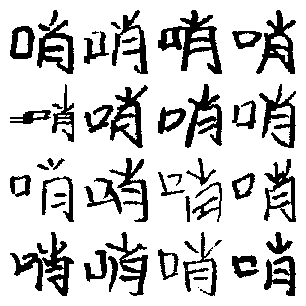 哨峭哨哨
哨哨哨哨
哨峭哨哨
哨峭哨哨